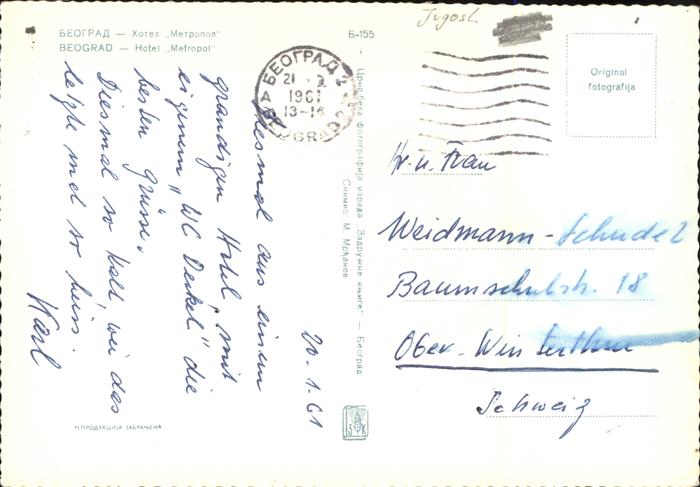 Jugosl.
БЕОГРАД — Хотел „Метропол"
BEOGRAD — Hotel „Metropol"
Б-155
БЕОГРАД
21
1961
13-14
BEOGRAD
Original
fotografija
Црно-бела фотографија израда „Задружне књиге" — Београд
Снимио: М. Мрђанов
20.1.61
Diesmal aus einem
grandigen Hotel, mit
eigenem „WC Deckel" die
besten Grüsse.
Diesmal so kalt, wie das
letzte mal so heiss.
Karl
Hr. u. Frau
Weidmann-Schudel
Baumschulstr. 18
Ober-Winterthur
Schweiz
РЕПРОДУКЦИЈА ЗАБРАЊЕНА